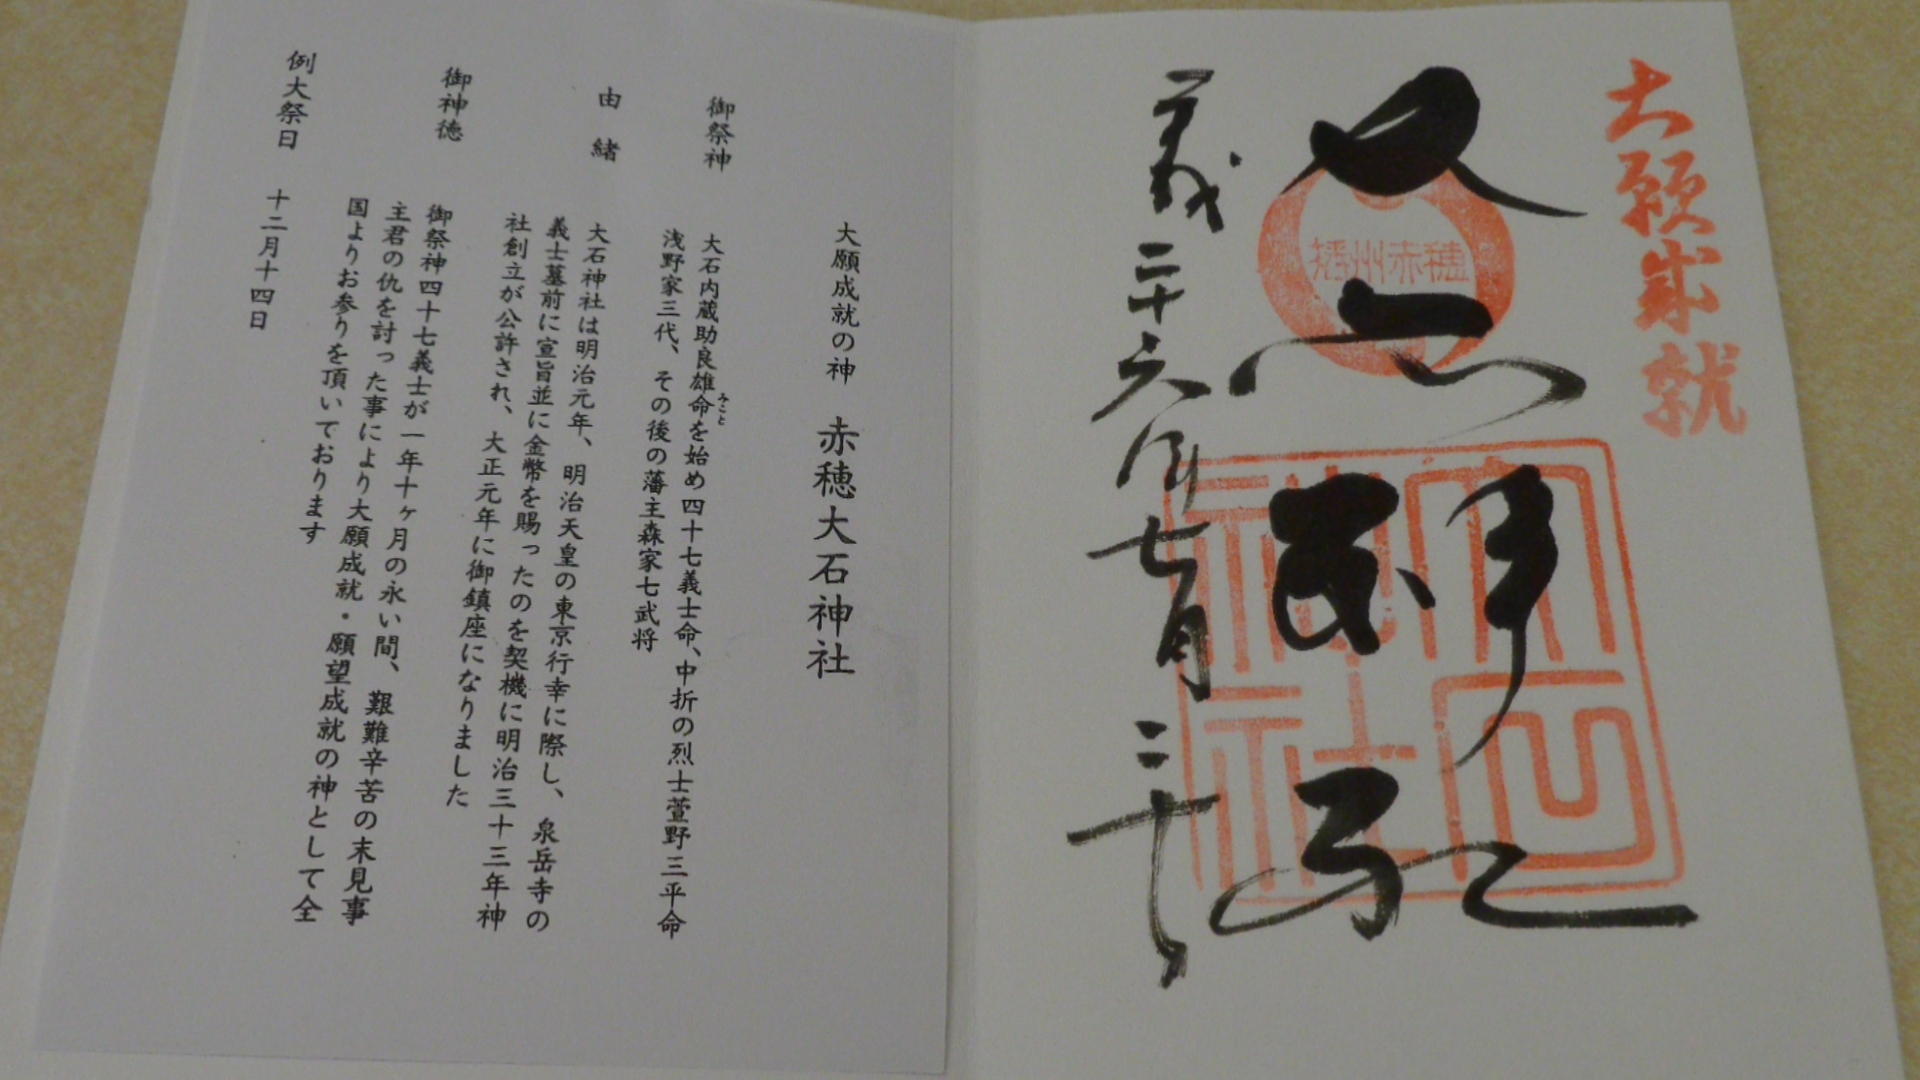 大願成就
播州赤穂
大石神社
七月三十日
大願成就の神 赤穂大石神社
御祭神
大石内蔵助良雄命を始め四十七義士命、中折の烈士萱野三平命
みこと
浅野家三代、その後の藩主森家七武将
由緒
大石神社は明治元年、明治天皇の東京行幸に際し、泉岳寺の
義士墓前に宣旨並に金幣を賜ったのを契機に明治三十三年神
社創立が公許され、大正元年に御鎮座になりました
御神徳
御祭神四十七義士が一年十ヶ月の永い間、艱難辛苦の末見事
主君の仇を討った事により大願成就・願望成就の神として全
国よりお参りを頂いております
例大祭日 十二月十四日